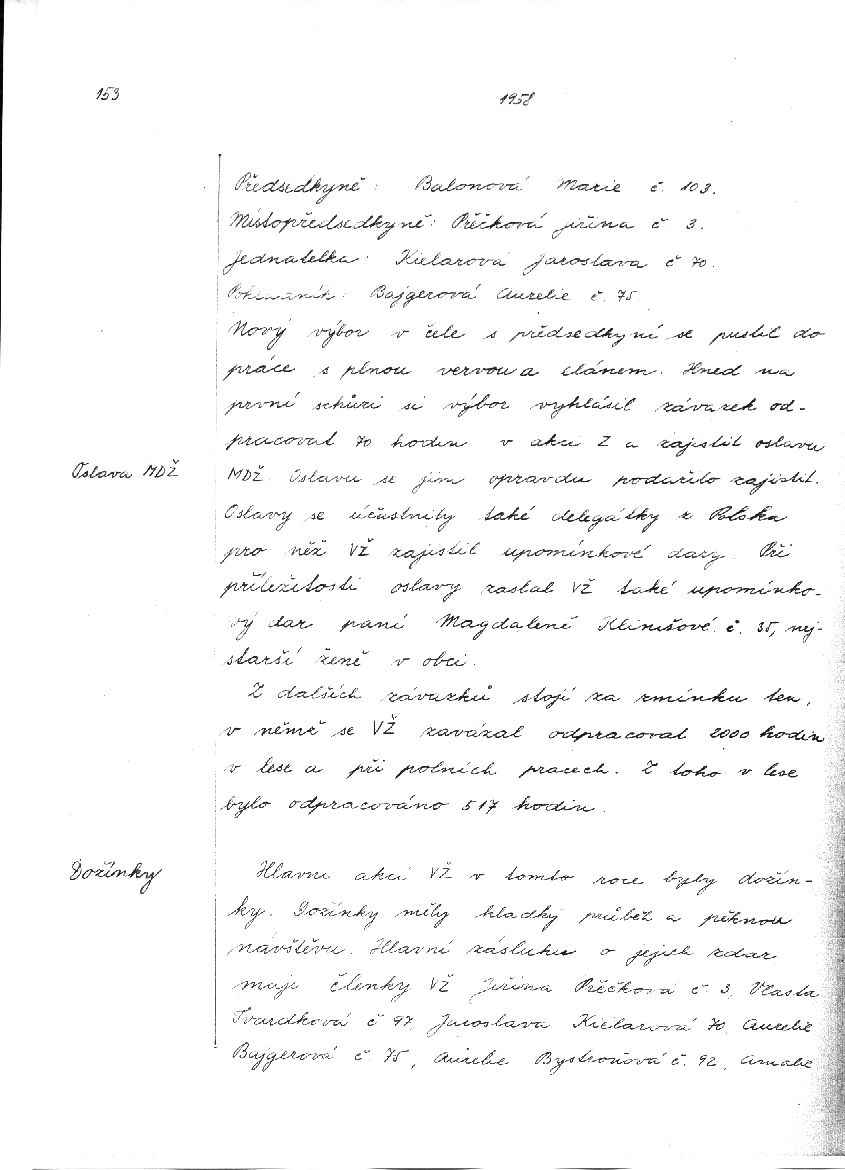 153
1958
Předsedkyně: Balonová Marie č. 103.
Místopředsedkyně: Pěčková Jiřina č 3.
Jednatelka: Kielarová Jaroslava č 70.
Pokladník: Bajgerová Aurelie č. 75
Nový výbor v čele s předsedkyní se pustil do
práce s plnou vervou a elánem. Hned na
první schůzi si výbor vyhlásil závazek od-
pracovat 70 hodin v akci Z a zajistil oslavu
Oslava MDŽ
MDŽ. Oslavu se jim opravdu podařilo zajistit.
Oslavy se účastnily také delegátky z Polska
pro něž VŽ zajistil upomínkové dary. Při
příležitosti oslavy zaslal VŽ také upomínko-
vý dar paní Magdaleně Klimšové č. 35, nej-
starší ženě v obci.
Z dalších závazků stojí za zmínku ten,
v němě se VŽ zavázal odpracovat 2000 hodin
v lese a při polních pracech. Z toho v lese
bylo odpracováno 517 hodin.
Dožínky
Hlavní akcí VŽ v tomto roce byly dožín-
ky. Dožínky měly hladký průběž a pěknou
návštěvu. Hlavní zásluhu o jejich zdar
mají členky VŽ Jiřina Pěčková č 3, Vlasta
Tvardková č 97, Jaroslava Kielarová 70, Aurelie
Bajgerová č. 75, Aurelie Bystroňová č. 92, Amalie